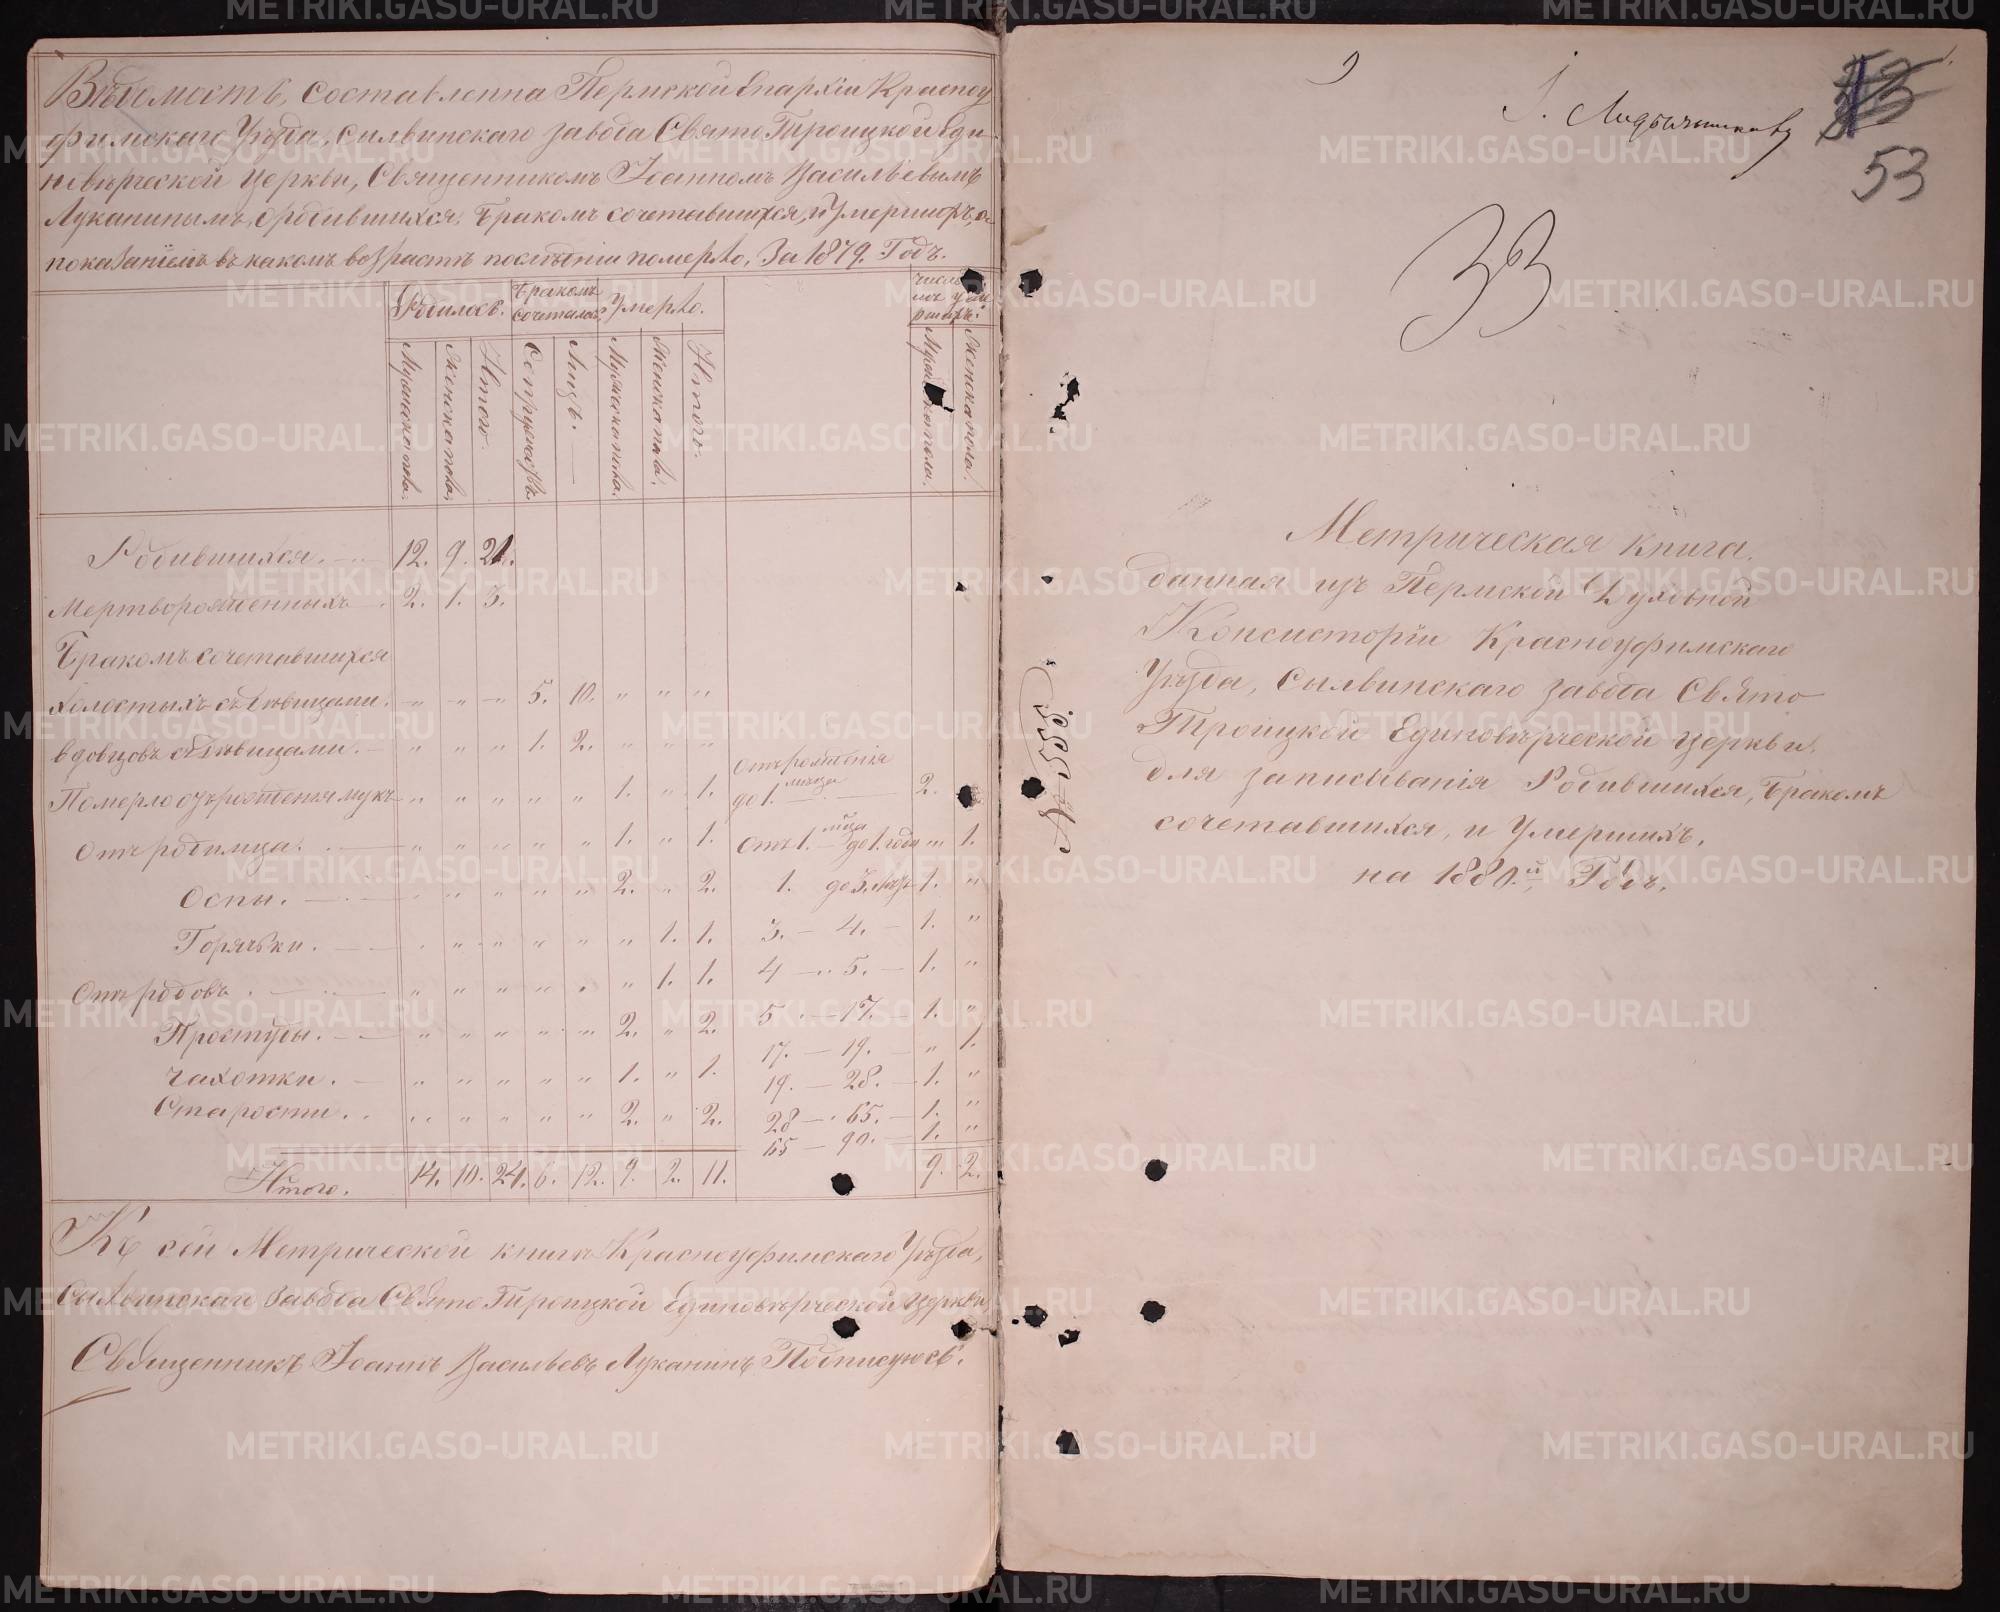 Вѣдомость, составленна Пермской Епархіи Красноу
фимскаго Уѣзда, Сылвинскаго завода Свято Троицкой Еди
новѣрческой церкви, Священникомъ Іоанномъ Васильевымъ
Луканинымъ, о родившихся, Бракомъ сочетавшихся, и Умершихъ, съ
показаніемъ въ какомъ возрастѣ послѣдніи померло, За 1879. Годъ.
Родилось. Бракомъ сочеталось Умерло. Число умершихъ:
Мужеска пола. Женска пола. Итого. Супружествъ. Лицъ. Мужеска пола. Женска пола. Итого. Мужеска пола. Женска пола.
Родившихся. 12. 9. 21.
Мертворожденныхъ 2. 1. 3.
Бракомъ сочетавшихся
холостыхъ съ дѣвицами. " " " 5. 10. " " "
вдовцовъ съ дѣвицами. " " " 1. 2. " " "
Померло отъ рожденія мукъ " " " " " 1. " 1. Отъ рожденія до 1. мѣсца 2.
Отъ родимца. " " " " " 1. " 1. Отъ 1. мѣца до 1. года " 1.
Оспы. " " " " " 2. " 2. 1. до 3. лѣтъ 1. "
Горячки. " " " " " " 1. 1. 3. — 4. — 1. "
Отъ родовъ. " " " " " " 1. 1. 4 — 5. — 1. "
Простуды. " " " " " 2. " 2. 5 — 17. — 1. "
17. — 19. — " 1.
Чахотки. " " " " " 1. " 1. 19. — 28. — 1. "
Старости. " " " " " 2. " 2. 28 — 65. — 1. "
65 — 90. — 1. "
Итого. 14. 10. 24. 6. 12. 9. 2. 11. 9. 2.
Къ сей Метрической книгѣ Красноуфимскаго Уѣзда,
Сылвинскаго Завода Свято Троицкой Единовѣрческой церкви,
Священникъ Іоаннъ Васильевъ Луканинъ Подписуюсь.
53
33
Метрическая книга.
данная изъ Пермской Духовной
Консисторіи Красноуфимскаго
Уѣзда, Сылвинскаго завода Свято
Троицкой Единовѣрческой церкви,
для записыванія Родившихся, Бракомъ
сочетавшихся, и Умершихъ.
на 1880.й Годъ.
METRIKI.GASO-URAL.RU